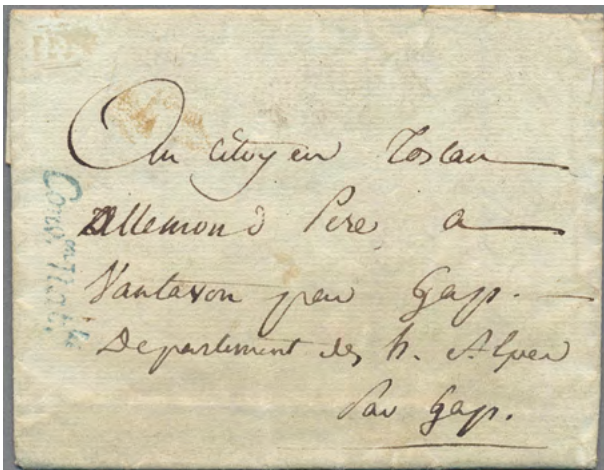 Au Citoyen Toscan
Allemond Pere a
Vantavon par Gap. —
Departement des h. Alpes
Par Gap.
Conv. Nat.